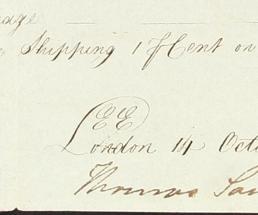 Shipping 1 ⅌Cent on
EE
London 14 Oct
Thomas